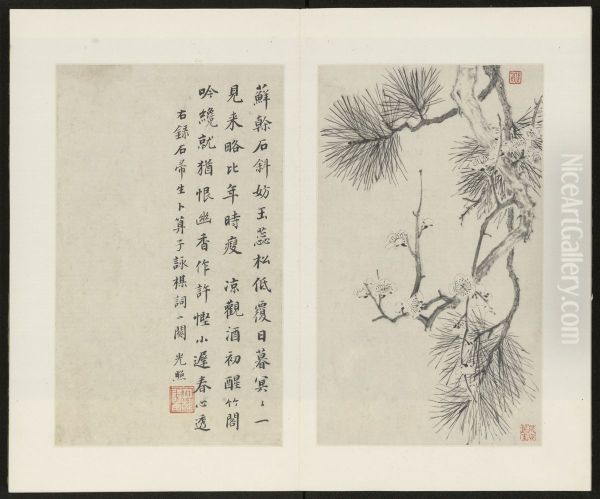 蘚榦石斜妨玉蕊松低覆日暮冥〻一
見来略比年時瘦 涼觀酒初醒竹閣
吟纔就猶恨幽香作許慳小遲春心透
右錄石帚生卜算子詠楳詞一闋 光照
NiceArtGallery.com